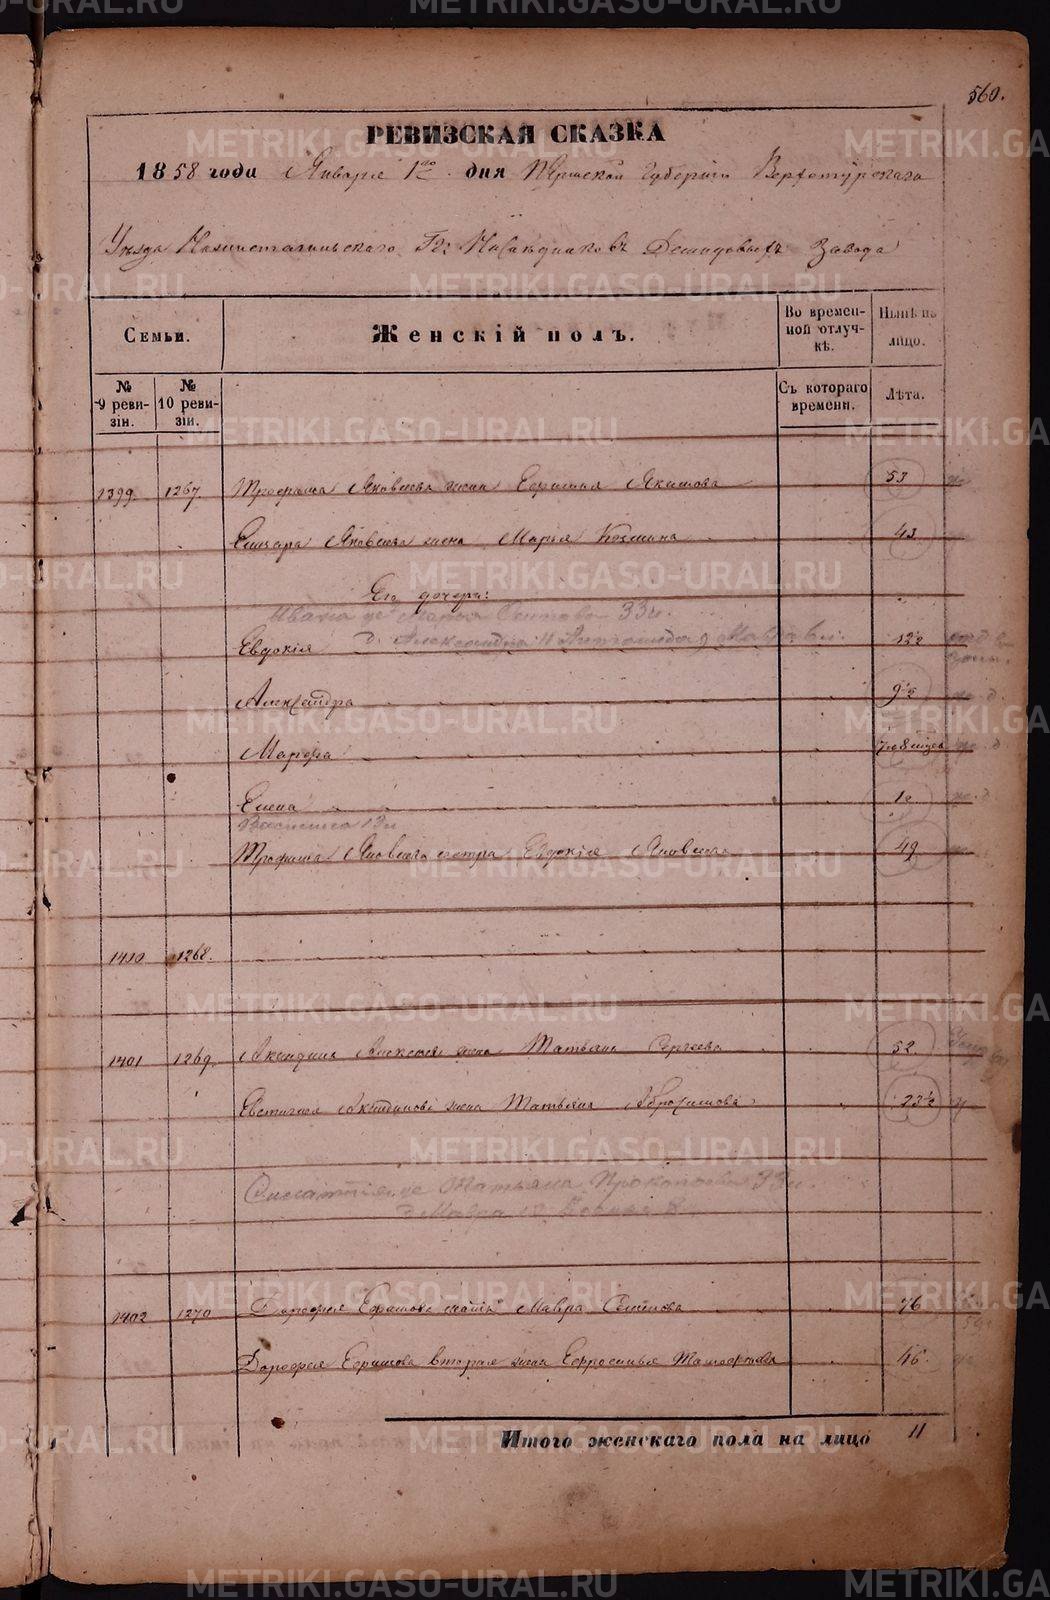 560.
РЕВИЗСКАЯ СКАЗКА
1858 года Января 1го дня Пермской Губернiи Верхотурскаго
Уѣзда Нижнетагильскаго Гг: Наслѣдниковъ Демидовыхъ Завода
Семьи. Женскiй полъ. Во времен-ной отлуч-кѣ. Нынѣ на лицо.
№ 9 реви-зiи. № 10 реви-зiи. Съ котораго времени. Лѣта.
1399. 1267. Трофима Яковлева жена Ефимья Якимова 53
Елизара Яковлева жена Марья Козмина 43
Его дочери:
Ивана же Марья 33
Евдокiя Александра 11 12½
Александра 9½
Марфа 7 и 8 мцов
Елена 1½
Василиса 13
Трофима Яковлева сестра Евдокiя Яковлева 49
1400 1268.
1401 1269. Акиндина Алексѣева жена Татьяна Сергѣева 52.
Евстигнея Акиндинова жена Татьяна Абросимова 23½
же Татьяна Прокопьева 33
1402 1270 Дорофея Ефимова мать Мавра Семенова 76
Дорофея Ефимова вторая жена Ефросинья 46.
Итого женскаго пола на лицо 11
METRIKI.GASO-URAL.RU